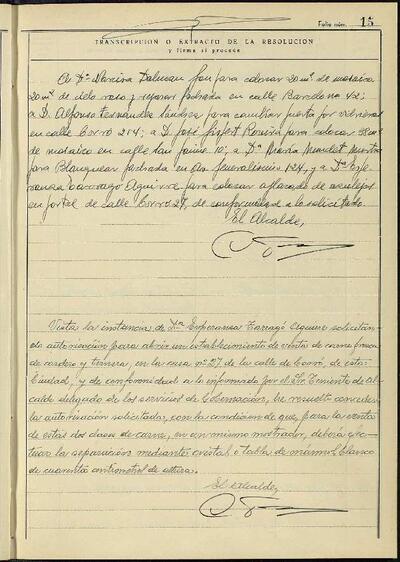 Folio núm. 15
TRANSCRIPCION O EXTRACTO DE LA RESOLUCION
y firma si procede
A Dª Dalmau para colocar 20 m². de mosaico
20 m². de cielo raso y reparar fachada en calle Barcelona 42; a
a D. Alfonso Fernandez Sanchez para cambiar puerta por vidrieras
en calle Corró 214; a D. José Rovira para colocar
de mosaico en calle San Jaime 10; a Dª María
para Blanquear fachada en Av. Generalísimo 124, y a Dª Espe-
ranza Tarragó Aguirre para colocar aplacado de azulejos
en portal de calle Corró 27, de conformidad a lo solicitado.
El Alcalde,
Vista la instancia de Dª Esperanza Tarragó solicitan-
do autorización para abrir un establecimiento de venta de carne fresca
de cordero y ternera, en la casa nº 27 de la calle de Corró, de esta
Ciudad, y de conformidad a lo informado por el Sr. Teniente de Al-
calde delegado de los servicios de Gobernación, he resuelto conceder
la autorización solicitada, con la condición de que, para la venta
de estas dos clases de carne, en un mismo mostrador, deberá efec-
tuar la separación mediante cristal o tabla de mármol blanco
de cuarenta centímetros de altura.
El Alcalde,